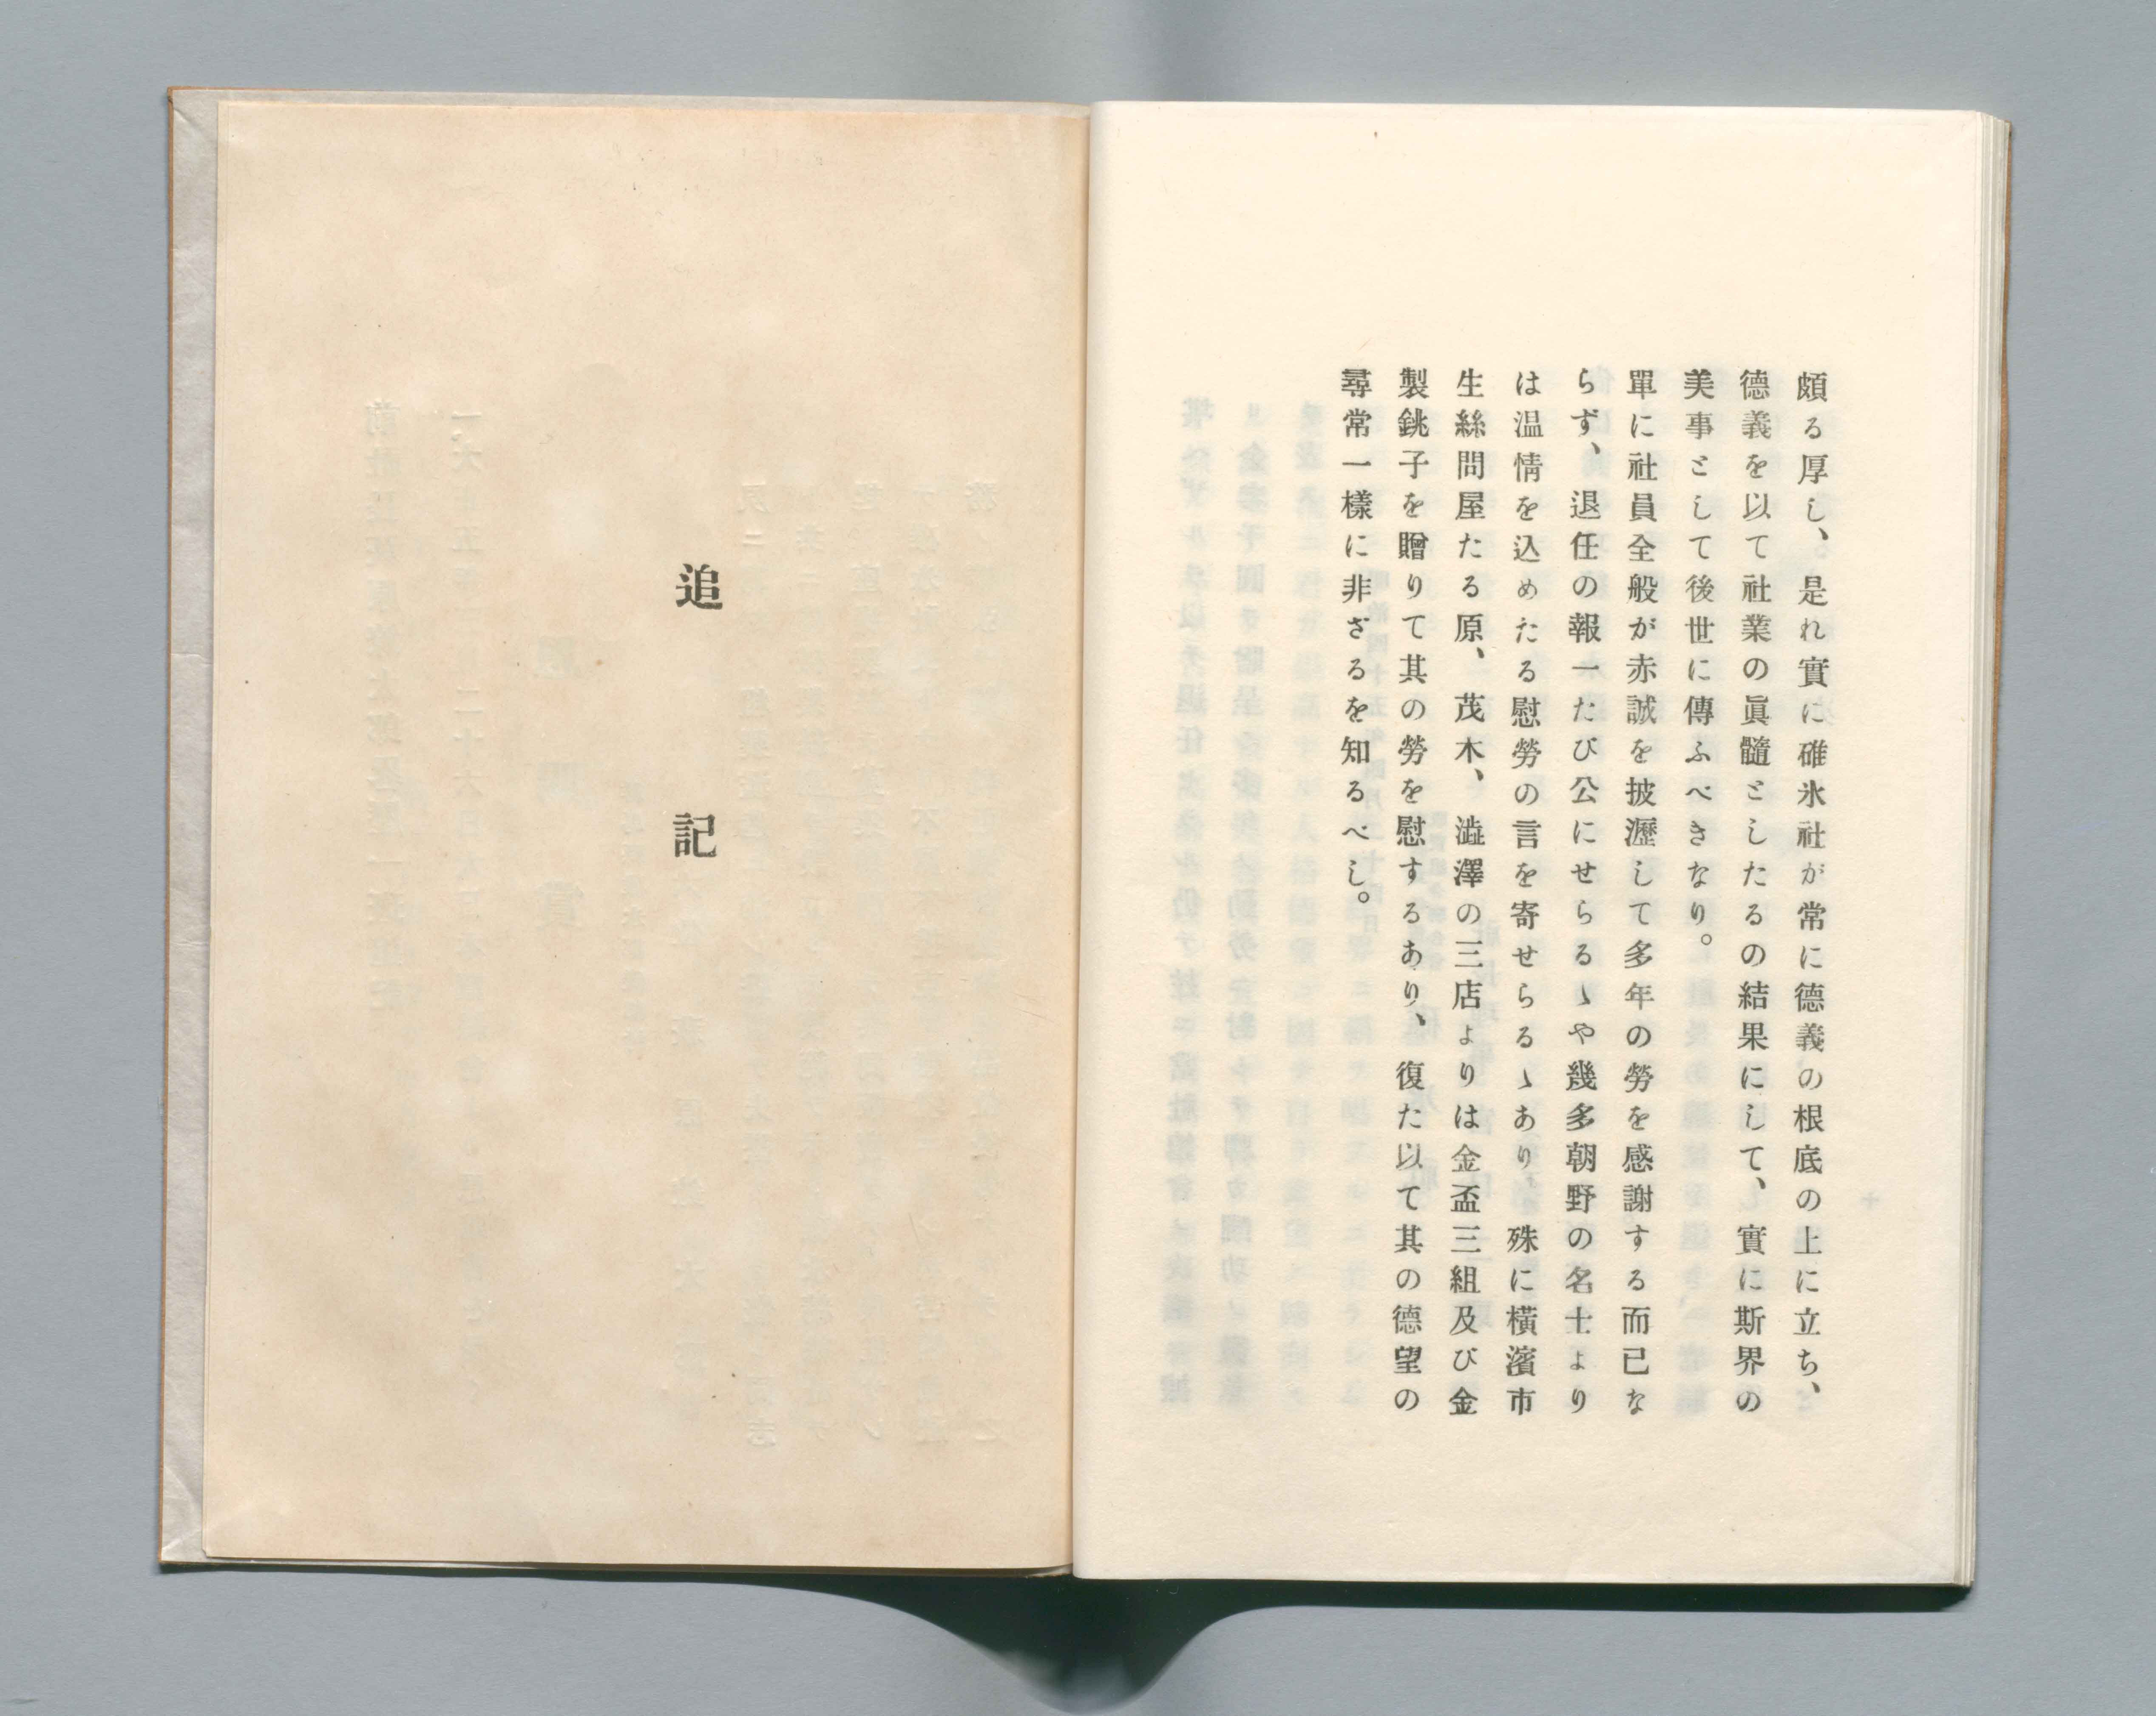 頗る厚し、是れ實に碓氷社が常に德義の根底の上に立ち、
德義を以て社業の眞髓としたるの結果にして、實に斯界の
美事として後世に傳ふべきなり。
單に社員全般が赤誠を披瀝して多年の勞を感謝する而已な
らず、退任の報一たび公にせらるゝや幾多朝野の名士より
は温情を込めたる慰勞の言を寄せらるゝあり、殊に橫濱市
生絲問屋たる原、茂木、澁澤の三店よりは金盃三組及び金
製銚子を贈りて其の勞を慰するあり、復た以て其の德望の
尋常一樣に非ざるを知るべし。
追記